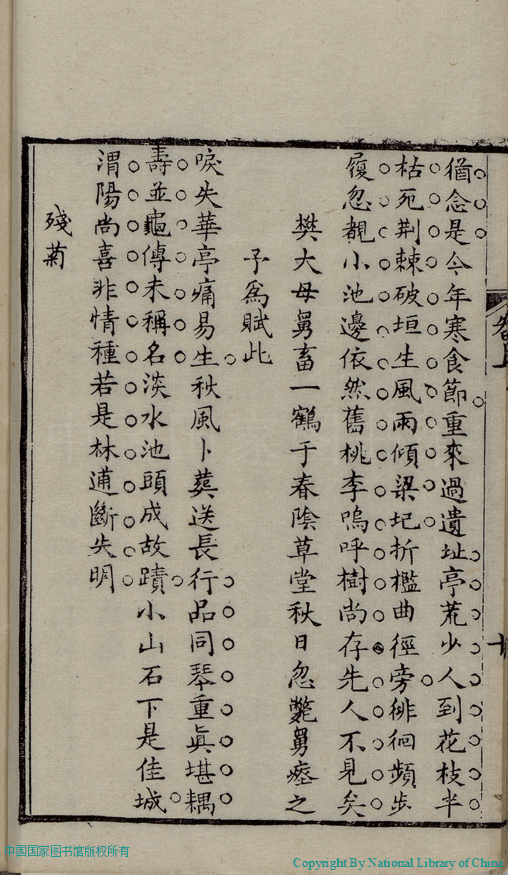 猶念是今年寒食節重來過遺址亭荒少人到花枝半
枯死荆棘破垣生風雨傾梁圮折檻曲徑旁徘徊頻步
履忽覩小池邊依然舊桃李嗚呼樹尚存先人不見矣
樊大母舅畜一鶴于春陰草堂秋日忽斃舅瘞之
子爲賦此
唳失華亭痛易生秋風卜葬送長行品同琴重眞堪耦
壽並龜傳未稱名淡水池頭成故蹟小山石下是佳城
渭陽尚喜非情種若是林逋斷失明
殘菊
中国国家图书馆版权所有
Copyright By National Library of China